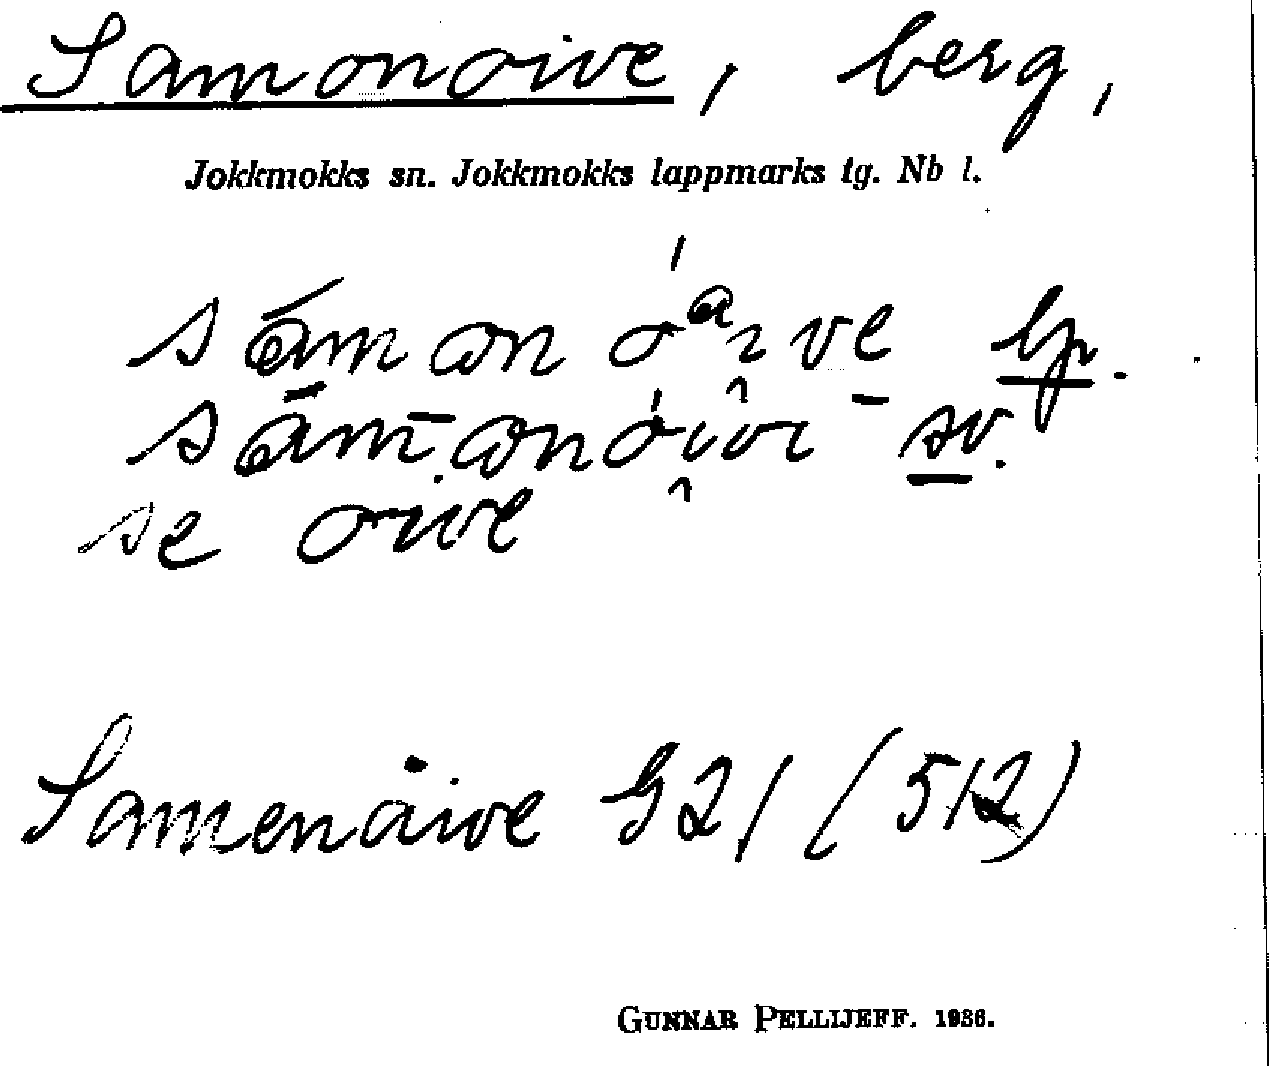 Samonoive, berg,
Jokkmokks sn. Jokkmokks lappmarks tg. Nb l.
lp.
sv.
se oive
Samenåive G21 (512)
GUNNAR PELLIJEFF. 1936.